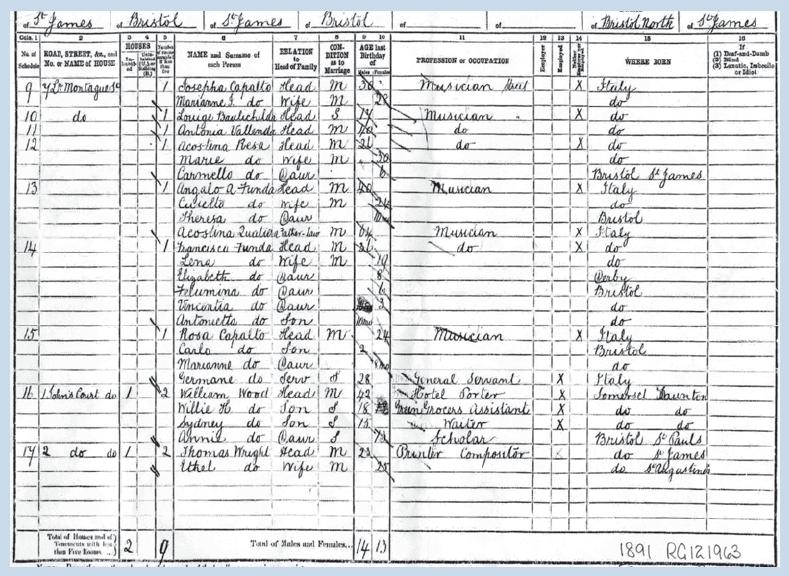 of St James of Bristol of St James of Bristol of of of Bristol North of St James
Cols. 1 2 3 4 5 6 7 8 9 10 11 12 13 14 15 16
No. of Schedule ROAD, STREET, &c., and No. or NAME of HOUSE HOUSES NAME and Surname of each Person RELATION to Head of Family CONDITION as to Marriage AGE last Birthday of Males Females PROFESSION or OCCUPATION Employer Employed WHERE BORN If (1) Deaf-and-Dumb (2) Blind (3) Lunatic, Imbecile or Idiot
9 1 Josepha Capalto Head M 30 Musician Street X Italy
Marianne do Wife M 28 do
10 do 1 Head S 19 Musician X do
11 1 Antonia Head M 40 do do
12 1 Acostina Resa Head M 31 do X do
Marie do Wife M 30 do
Carmello do Daur 6 Bristol St James
13 1 Angalo A Funda Head M 40 Musician X Italy
do Wife M 24 do
Theresa do Daur Bristol
Acostina Father-law M 64 Musician X Italy
14 1 Francisca Funda Head M 31 do X do
Lena do Wife M do
Elizabeth do Daur 8 Derby
Filumina do Daur 6 Bristol
do Daur 3 do
Antonietta do Son do
15 1 Rosa Capalto Head M 24 Musician X Italy
Carlo do Son 2 Bristol
Marianne do Daur do
Germane do Serv S 28 General Servant X Italy
16 1 John's Court do 1 2 William Wood Head M 42 Hotel Porter X Somerset Taunton
Willie H do Son S 18 Green Grocers Assistant X do do
Sydney do Son S 15 Waiter X do do
Annie do Daur S 13 Scholar Bristol St Pauls
17 2 do do 1 2 Thomas Wright Head M 23 Printer Compositor X do St James
Ethel do Wife M 25 do St Augustines
Total of Houses and of Tenements with less than Five Rooms 2 9 Total of Males and Females... 14 13
1891 RG121963